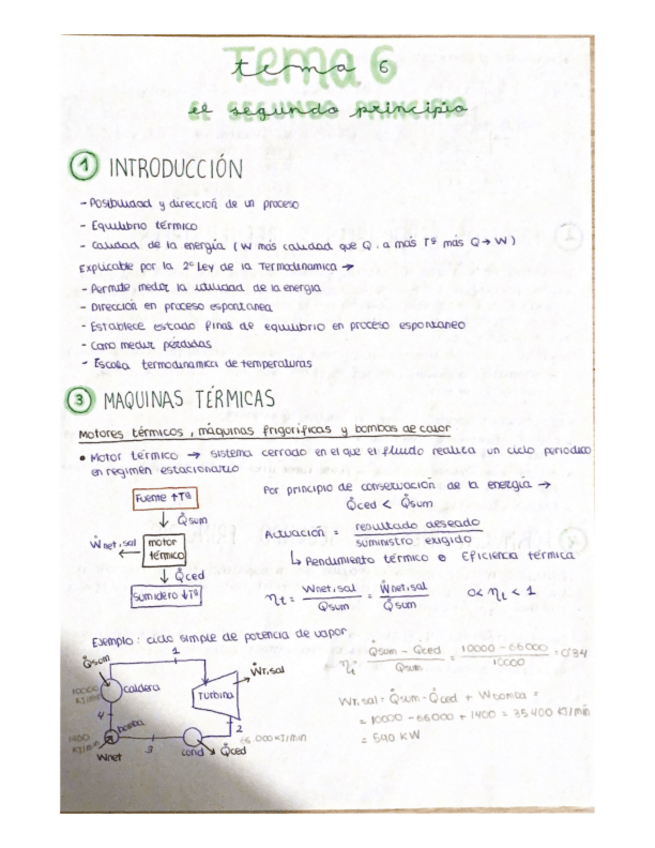 tema 6
el segundo principio
1 INTRODUCCIÓN
- Posibilidad y dirección de un proceso
- Equilibrio térmico
- Calidad de la energía (W más calidad que Q. a más Tª más Q → W)
Explicable por la 2ª Ley de la Termodinamica →
- Permite medir la utilidad de la energia
- Dirección en proceso espontanea
- Establece estado final de equilibrio en proceso espontaneo
- Como medir pérdidas
- Escala termodinamica de temperaturas
3 MAQUINAS TÉRMICAS
Motores térmicos, máquinas frigoríficas y bombas de calor
• Motor térmico → sistema cerrado en el que el fluido realiza un ciclo periodico
en regimen estacionario
Por principio de conservación de la energía →
Q̇ced < Q̇sum
Fuente ↑Tª
↓ Q̇sum
Ẇnet,sal ← motor térmico
↓ Q̇ced
Sumidero ↓Tª
Actuación = resultado deseado / suministro exigido
↳ Rendimiento térmico o Eficiencia térmica
ηt = Wnet,sal / Qsum = Ẇnet,sal / Q̇sum 0 < ηt < 1
Ejemplo: ciclo simple de potencia de vapor
Q̇sum
1
Ẇr,sal
caldera
Turbina
10000 KJ/min
4
bomba
1400 KJ/min
Wnet
3
cond
Q̇ced
2
66.000 KJ/min
ηt = Q̇sum - Q̇ced / Q̇sum = 10000 - 66000 / 10000 = 0'34
Wr,sal = Q̇sum - Q̇ced + Wbomba =
= 10000 - 66000 + 1400 = 35400 KJ/min
= 590 KW